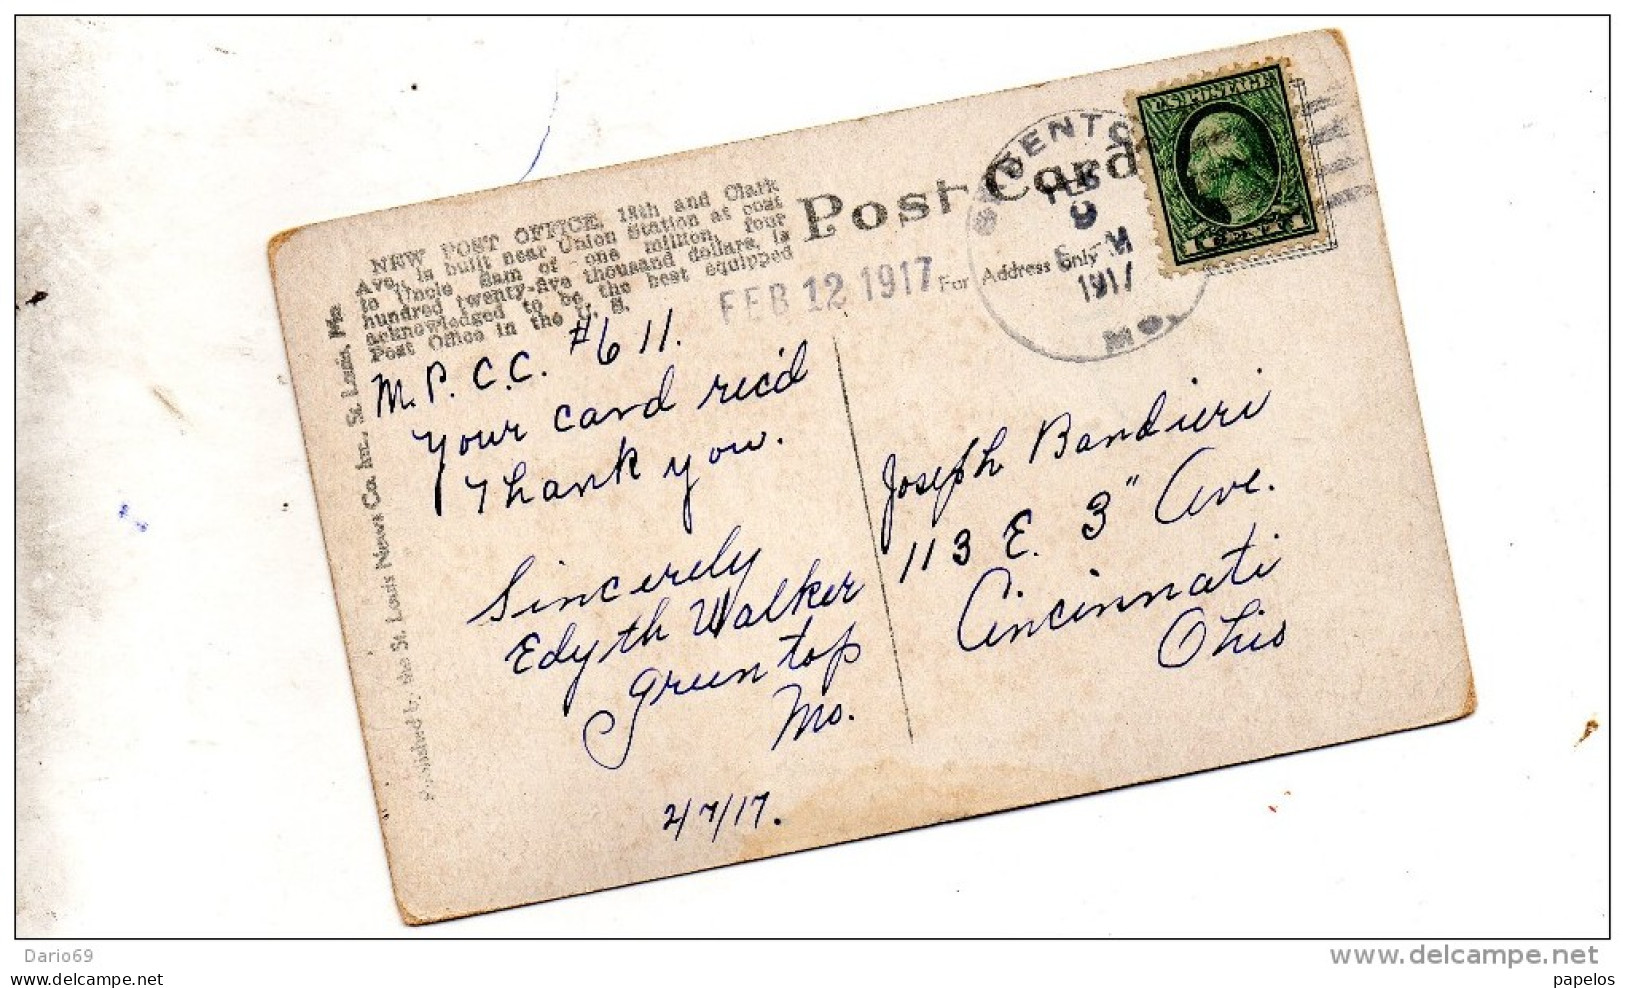 NEW POST OFFICE, 18th and Clark
Ave., is built near Union Station at cost
to Uncle Sam of one million, four
hundred twenty-five thousand dollars, is
acknowledged to be the best equipped
Post Office in the U. S.
Post Card
For Address Only
FEB 12 1917
FEB
9
M
1917
MO.
U.S. POSTAGE
1 CENT 1
M.P.C.C. #611.
Your card rec'd
Thank you.
Sincerely
Edyth Walker
Greentop
Mo.
2/7/17.
Joseph Bandieri
113 E. 3" Ave.
Cincinnati
Ohio
Published by the St. Louis News Co. Inc., St. Louis, Mo
Dario69
www.delcampe.net
papelos